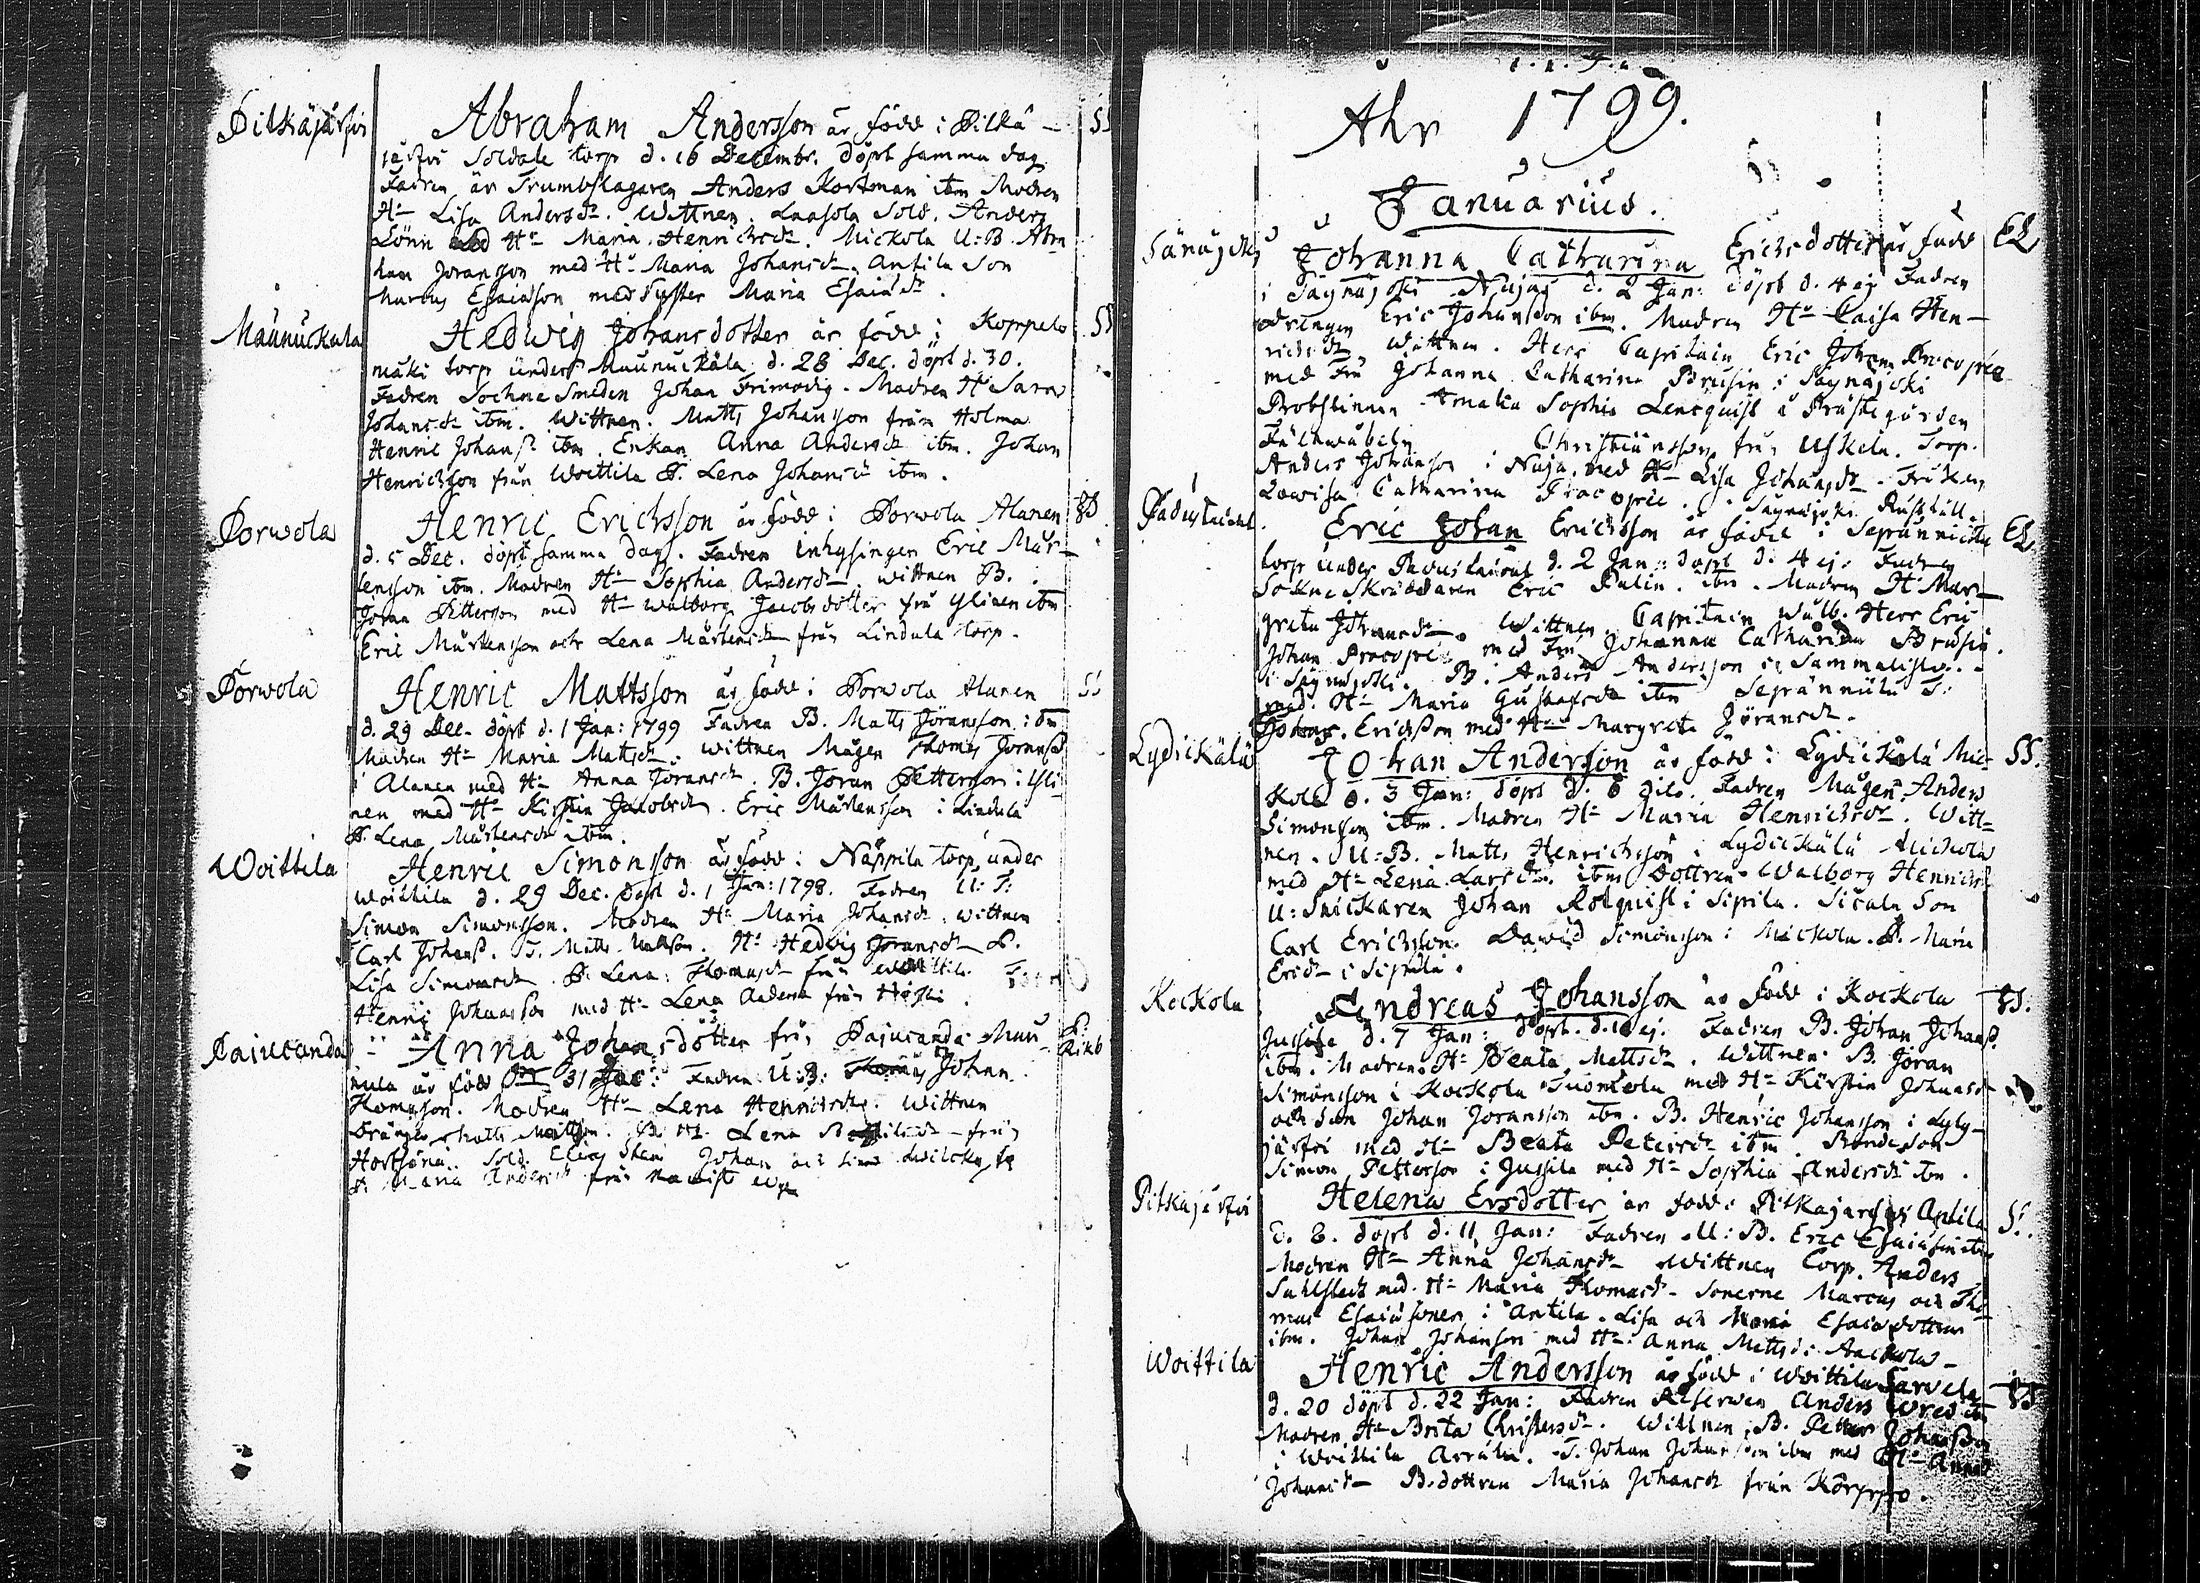 Pitkäjärfwi
Abraham Andersson är född i Pitkä- SS
järfwi Soldate torp d. 16 Decembr. döpt samma dag
Fadren är Trumbslagaren Anders Kortman ibm Modren
H- Lisa Andersdr. Wittnen. Laasola Sold. Anders
Lönn H- Maria Henrichsdr. Mickola U:B. Abra
ham Joransson med H- Maria Johansdr. Antila Son
Marcus Esaiasson med Syster Maria Esaiædr.
Maunuckala
Hedwig Johansdotter är född i Koppelo SS
mäki torp under Maunuckala d. 28 Dec. döpt d. 30.
Fadren Sochne Smeden Johan Frimodig. Modren H- Sara
Johansdr ibm. Wittnen. Matts Johansson från Holma
Henric Johanss. ibm. Enkan Anna Andersdr ibm. Johan
Henrichsson från Woittila P. Lena Johansdr ibm.
Porwola
Henric Ericksson är född i Porwola Alanen
d. 5 Dec. döpt samma dag. Fadren inhysingen Eric Mår-
tensson ibm. Modren H- Sophia Andersdr. wittnen B.
Jöran Pettersson med H- Walborg Jacobsdotter frå Ylinen ibm
Eric Mårtensson och Lena Mårtensdr från Lindula torp.
Porwola
Henric Mattsson är född i Porwola Alanen SS
d. 29 Dec. döpt d. 1 Jan: 1799 Fadren B. Matts Jöransson ibm
Modren H- Maria Matsdr. wittnen Mågen Thomas Joranss.
i Alanen med H- Anna Joransdr. B. Joran Pettersson i Yli-
nen med H- Kirstin Jacobsdr. Eric Mårtensson i Lindula
P. Lena Mårtensdr ibm.
Woittila
Henric Simonsson är född i Näppilä torp under
Woittila d. 29 Dec. döpt d. 1 Jan: 1798. Fadren U: T:
Simon Simonsson. Modren H- Maria Johansdr. wittnen
Carl Johanss. T. Matts Mattsson. H- Hedvig Joransdr P.
Lisa Simonsdr P. Lena Thomasdr frå Woittila
Henric Johansson med H- Lena Andersdr från
Pajucanda
Anna Johansdotter frå Pajucanda Mau-
nula är född 31 Fadren U:B: Johan
Thomasson. Modren H- Lena Henricsdr. Wittnen
Drängen Matts Mattsson. Lena från
Sold. Elias Johan och
P. Maria Andersdr från
Ahr 1799.
Januarius.
Johanna Catharina Ericksdotter är född EL
i Säynäjoki Nuija d. 2 Jan: döpt d. 4 ej Fadren
drängen Eric Johansson ibm. Modren H- Caisa Hen-
ricsdr Wittnen. Herr Capitain Eric Johan Procopée
med Fru Johanna Catharina Brusin i Säynäjoki
Probstinnan Amalia Sophia Lencquist å Prästegården
Fältwäbeln Christiansson frå Uskela. Torp.
Anders Johansson i Nuija med H- Lisa Johansdr. Fröken
Lowisa Catharina Procopée. Säynäjoki Rusthåll.
Eric Johan Ericksson är född i EL
torp under d. 2 Jan: döpt d. 4 ej. Fadren
Sockne Skräddaren Eric Palin ibm. Modren H- Mar-
greta Johansdr. Wittnen. Capitain Wälb. Herr Eric
Johan Procopée med Fru Johanna Catharina Brusin
i Säynäjoki. B: Anders Andersson i Sammalisto
med H- Maria Gustafsdr ibm
Ericksson med H- Margreta Jöransdr.
Lydickälä
Johan Andersson är född i Lydickälä Mic- SS.
kola d. 3 Jan: döpt d. 6 dito. Fadren Mågen Anders
Simonsson ibm. Modren H- Maria Henrichsdr. Witt-
nen. U:B. Matts Henrichsson i Lydickälä Mickola
med H- Lena Larsdr. ibm Dottren Walborg Henricsdr
U: Snickaren Johan Rotquist i Sipila. Sicala Son
Carl Ericksson. Dawid Simonsson i Mickola. P. Maria
Ericsdr i Sipila.
Kockola
Andreas Johansson är född i Kockola
Jussila d. 7 Jan: döpt. d. 10 ej. Fadren B. Johan Johanss.
ibm. Modren H- Beata Mattsdr. Wittnen B. Jöran
Simonsson i Kockola Tuomola med H- Kirstin Johansdr
och Son Johan Joransson ibm. B. Henric Johansson i Lyly-
järfwi med H- Beata Petersdr ibm. Bonde Son
Simon Pettersson i Jussila med H- Sophia Andersdr ibm.
Pitkäjärfwi
Helena Ersdotter är född i Pitkäjärfwi Antila SS.
d. 8. döpt d. 11 Jan: Fadren U:B. Eric Esaiæson ibm
Modren H- Anna Johansdr Wittnen Corp. Anders
Sahlstedt med H- Maria Thomasdr. Sönerne Marcus och Tho-
mas Esaiæsöner i Antila. Lisa och Maria Esaiædöttrar
ibm. Johan Johansson med H- Anna Mattsdr
Woittila
Henric Andersson är född i Woittila Sarvela
d. 20 döpt d. 22 Jan: Fadren Reserven Anders Wred ibm
Modren H- Brita Christersdr. Wittnen B. Petter Johansson
i Woittila Arrala. T. Johan Johansson ibm med H- Anna
Johansdr B.dottren Maria Johansdr från Körppo.